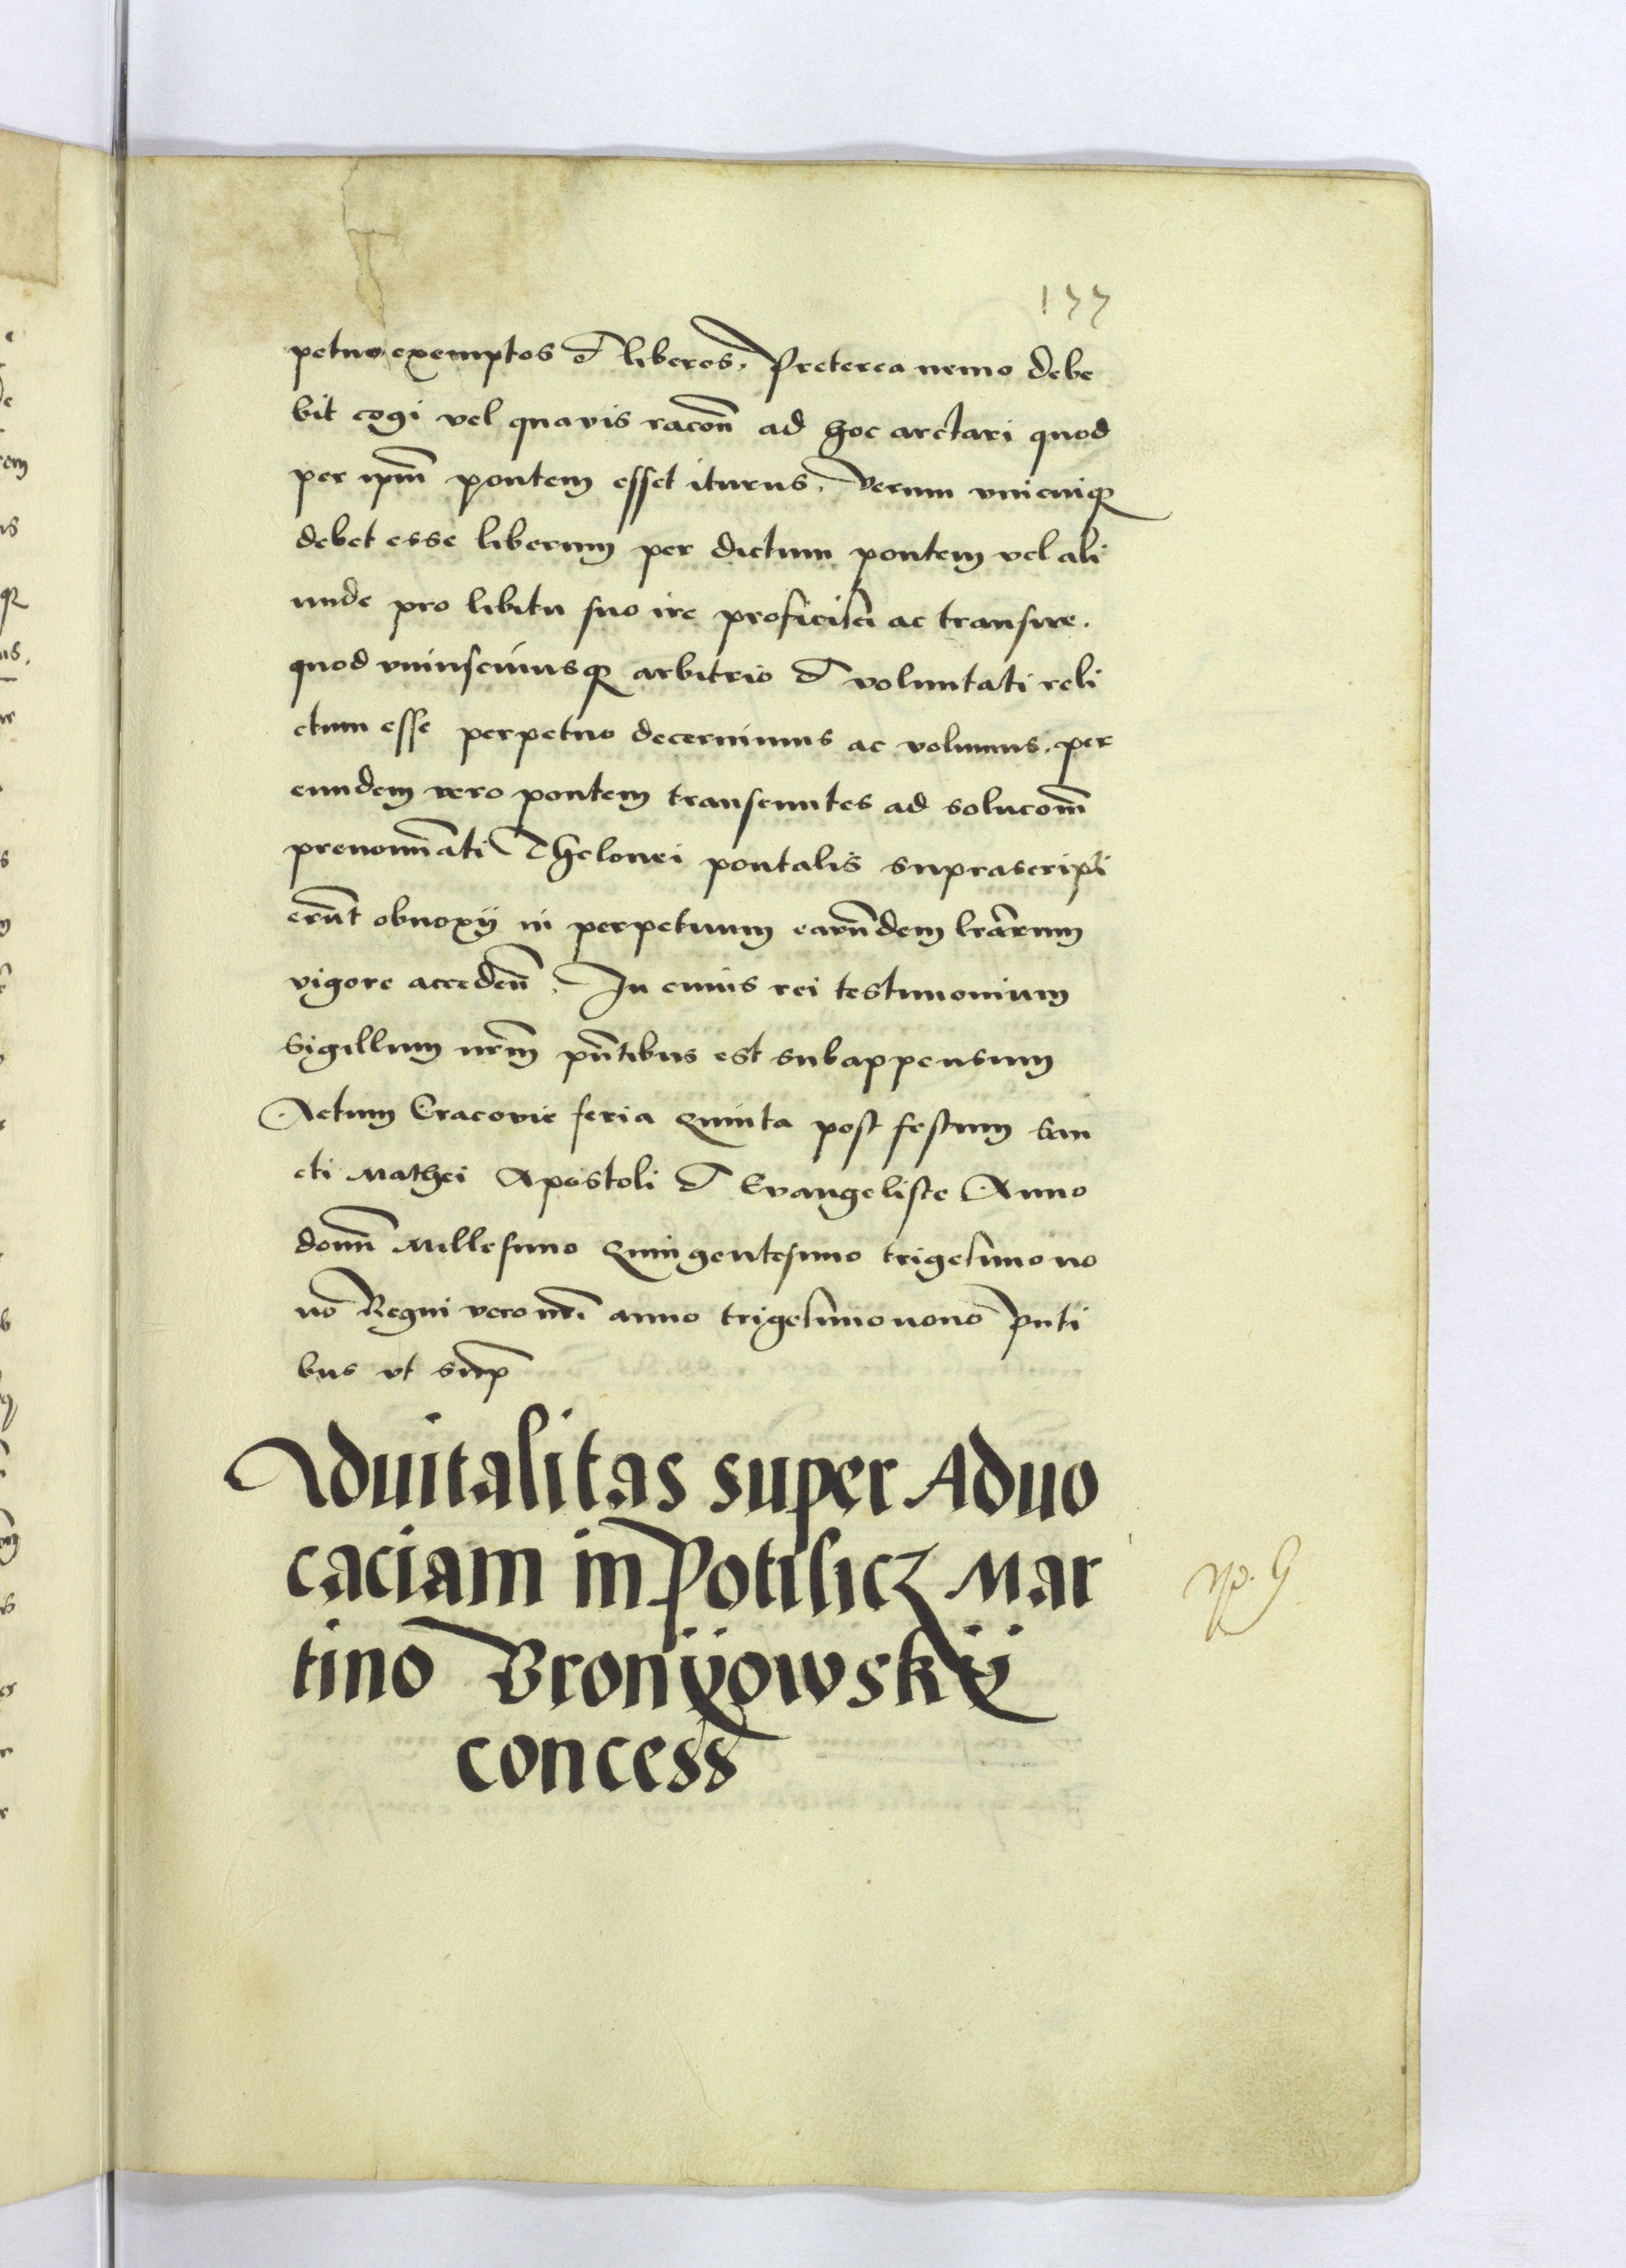 177
petuo exemptos et liberos. Preterea nemo debe
bit cogi vel quavis racon̄ ad hoc arctari quod
per ipm̄ pontem esset iturus. Verum vnicuiqꝫ
debet esse liberum per dictum pontem vel ali
unde pro libitu suo ire proficisci ac transire.
quod vniuscuiusqꝫ arbitrio et voluntati reli
ctum esse perpetuo decernimus ac volumus. per
eundem vero pontem transeuntes ad solucom̄
prenoīati Thelonei pontalis suprascripti
erūt obnoxij in perpetuum earūdem lrārum
vigore acceden̄. In cuius rei testimonium
Sigillum nrm̄ pn̄tibus est subappensum
Actum Cracovie feria Quinta post festum san
cti Mathei Apostoli et Evangeliste Anno
domī Millesimo Quingentesimo trigesimo no
no Regni vero nrī anno trigesimo nono pn̄ti
bus vt sup̄
Advitalitas super Advo
caciam in Potilicz Mar
tino Bronÿowskÿ
concess̄